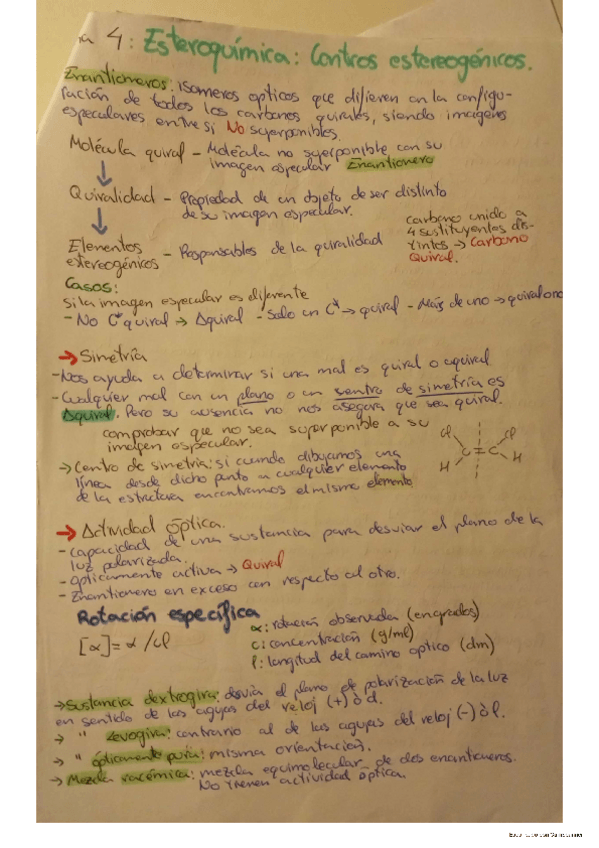 4: Esteroquímica: Centros estereogénicos.
Enantiomeros: isomeros opticos que difieren en la configu-
ración de todos los carbonos quirales, siendo imagenes
especulares entre si No superponibles.
Molécula quiral - Molécula no superponible con su
imagen especular Enantionero
Quiralidad - Propiedad de un objeto de ser distinto
de su imagen especular.
Elementos
estereogénicos - Responsables de la quiralidad
carbono unido a
4 sustituyentes dis-
tintos → Carbono
Quiral.
Casos:
Si la imagen especular es diferente
- No C* quiral → Aquiral - Solo un C* → quiral - Más de uno → quiral o no
→ Simetría
- Nos ayuda a determinar si una mol es quiral o aquiral
- Cualquier mol con un plano o un centro de simetría es
Aquiral. Pero su ausencia no nos asegura que sea quiral.
comprobar que no sea superponible a su
imagen especular.
→ Centro de simetria: si cuando dibujamos una
línea desde dicho punto a cualquier elemento
de la estructura encontramos el mismo elemento
Cl Cl
C = C
H H
→ Actividad óptica.
- capacidad de una sustancia para desviar el plano de la
luz polarizada.
- ópticamente activa → Quiral
- Enantionero en exceso con respecto al otro.
Rotación específica
[α] = α / cl
α: rotación observada (en grados)
c: concentración (g/ml)
l: longitud del camino optico (dm)
→ Sustancia dextrogira: desvia el plano de polarización de la luz
en sentido de las agujas del reloj (+) ò d.
→ " Levogira: contrario al de las agujas del reloj (-) ò l.
→ " ópticamente pura: misma orientación.
→ Mezcla racémica: mezcla equimolecular de dos enantioneros.
No tienen actividad óptica.